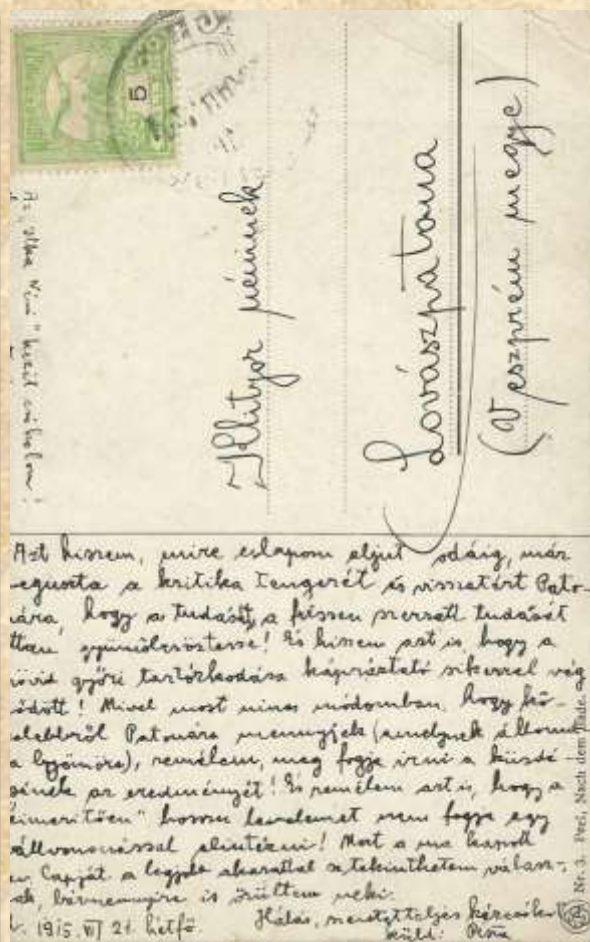 5
Klityor néninek
Lovászpatona
(Veszprém megye)
kezét csókolom!
Azt hiszem, mire eslapom eljut odáig, már
a kritika Tengerét és visszatért Pato-
hogy a tudását, a frissen szerzett tudását
gyümölcsöztesse! És hiszem azt is hogy a
győri tartózkodása káprázatató sikerrel vég
ődött! Mivel most nincs módomban, hogy kö-
Patonára mennyjek (amelynek
a remélem, meg fogja irni a küzdé-
sének az eredményét! És remélem azt is, hogy a
hosszu levelemet nem fogja egy
vállvonással elintézni! Mert a ma kapott
Lapját a legjobb akarattal se tekinthetem válasz-
nak, bármennyire is örültem neki.
1915. VI 21. hétfő. Hálás, szeretetteljes
küldi:
Nr. 3. Feri, Nach dem Bade.